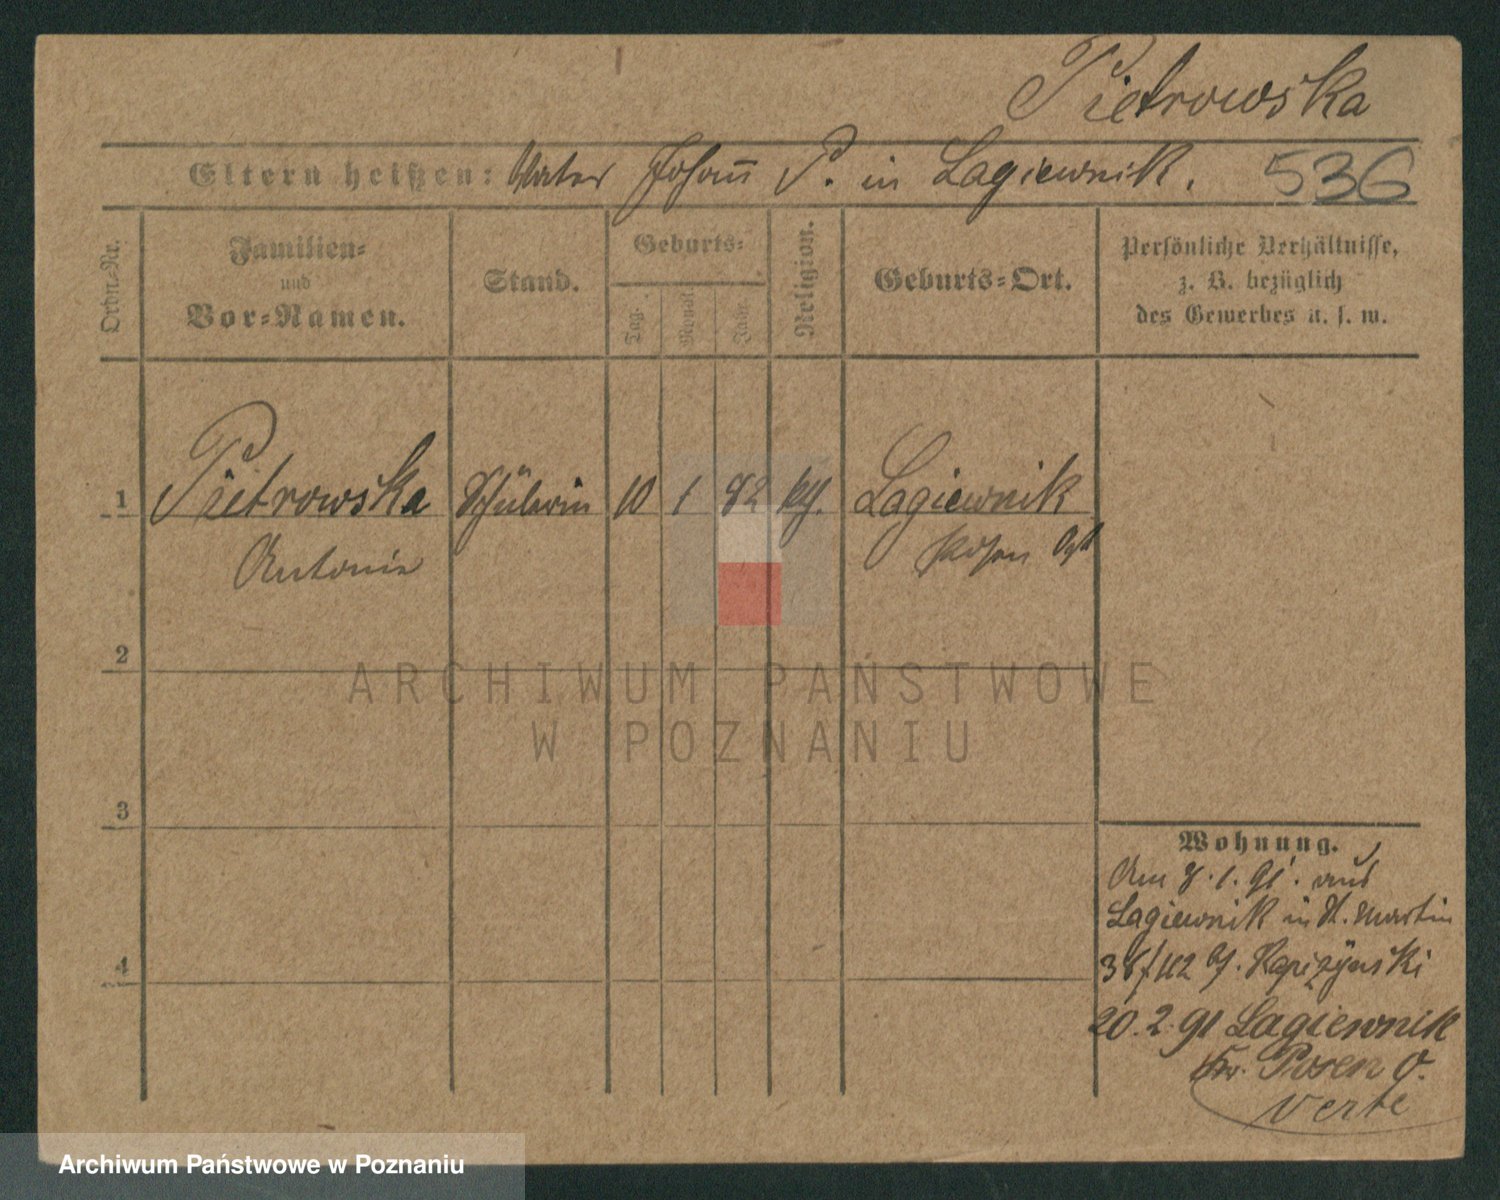 Pietrowska
Eltern heißen: Vater Johann P. in Lagiewnik. 536
Ordn.-Nr.
Familien-
und
Vor-Namen.
Stand.
Geburts-
Tag.
Monat
Jahr
Religion.
Geburts-Ort.
Persönliche Verhältnisse,
z. B. bezüglich
des Gewerbes u. s. w.
1 Pietrowska Schülerin 10 1 82 kth. Lagiewnik
Antonie Posen Ost
2
ARCHIWUM PAŃSTWOWE
W POZNANIU
3
4
Wohnung.
Am 8. 1. 91. aus
Lagiewnik in St. Martin
38/42 b. Kapczynski
20. 2. 91 Lagiewnik
Kr. Posen O.
verte
Archiwum Państwowe w Poznaniu